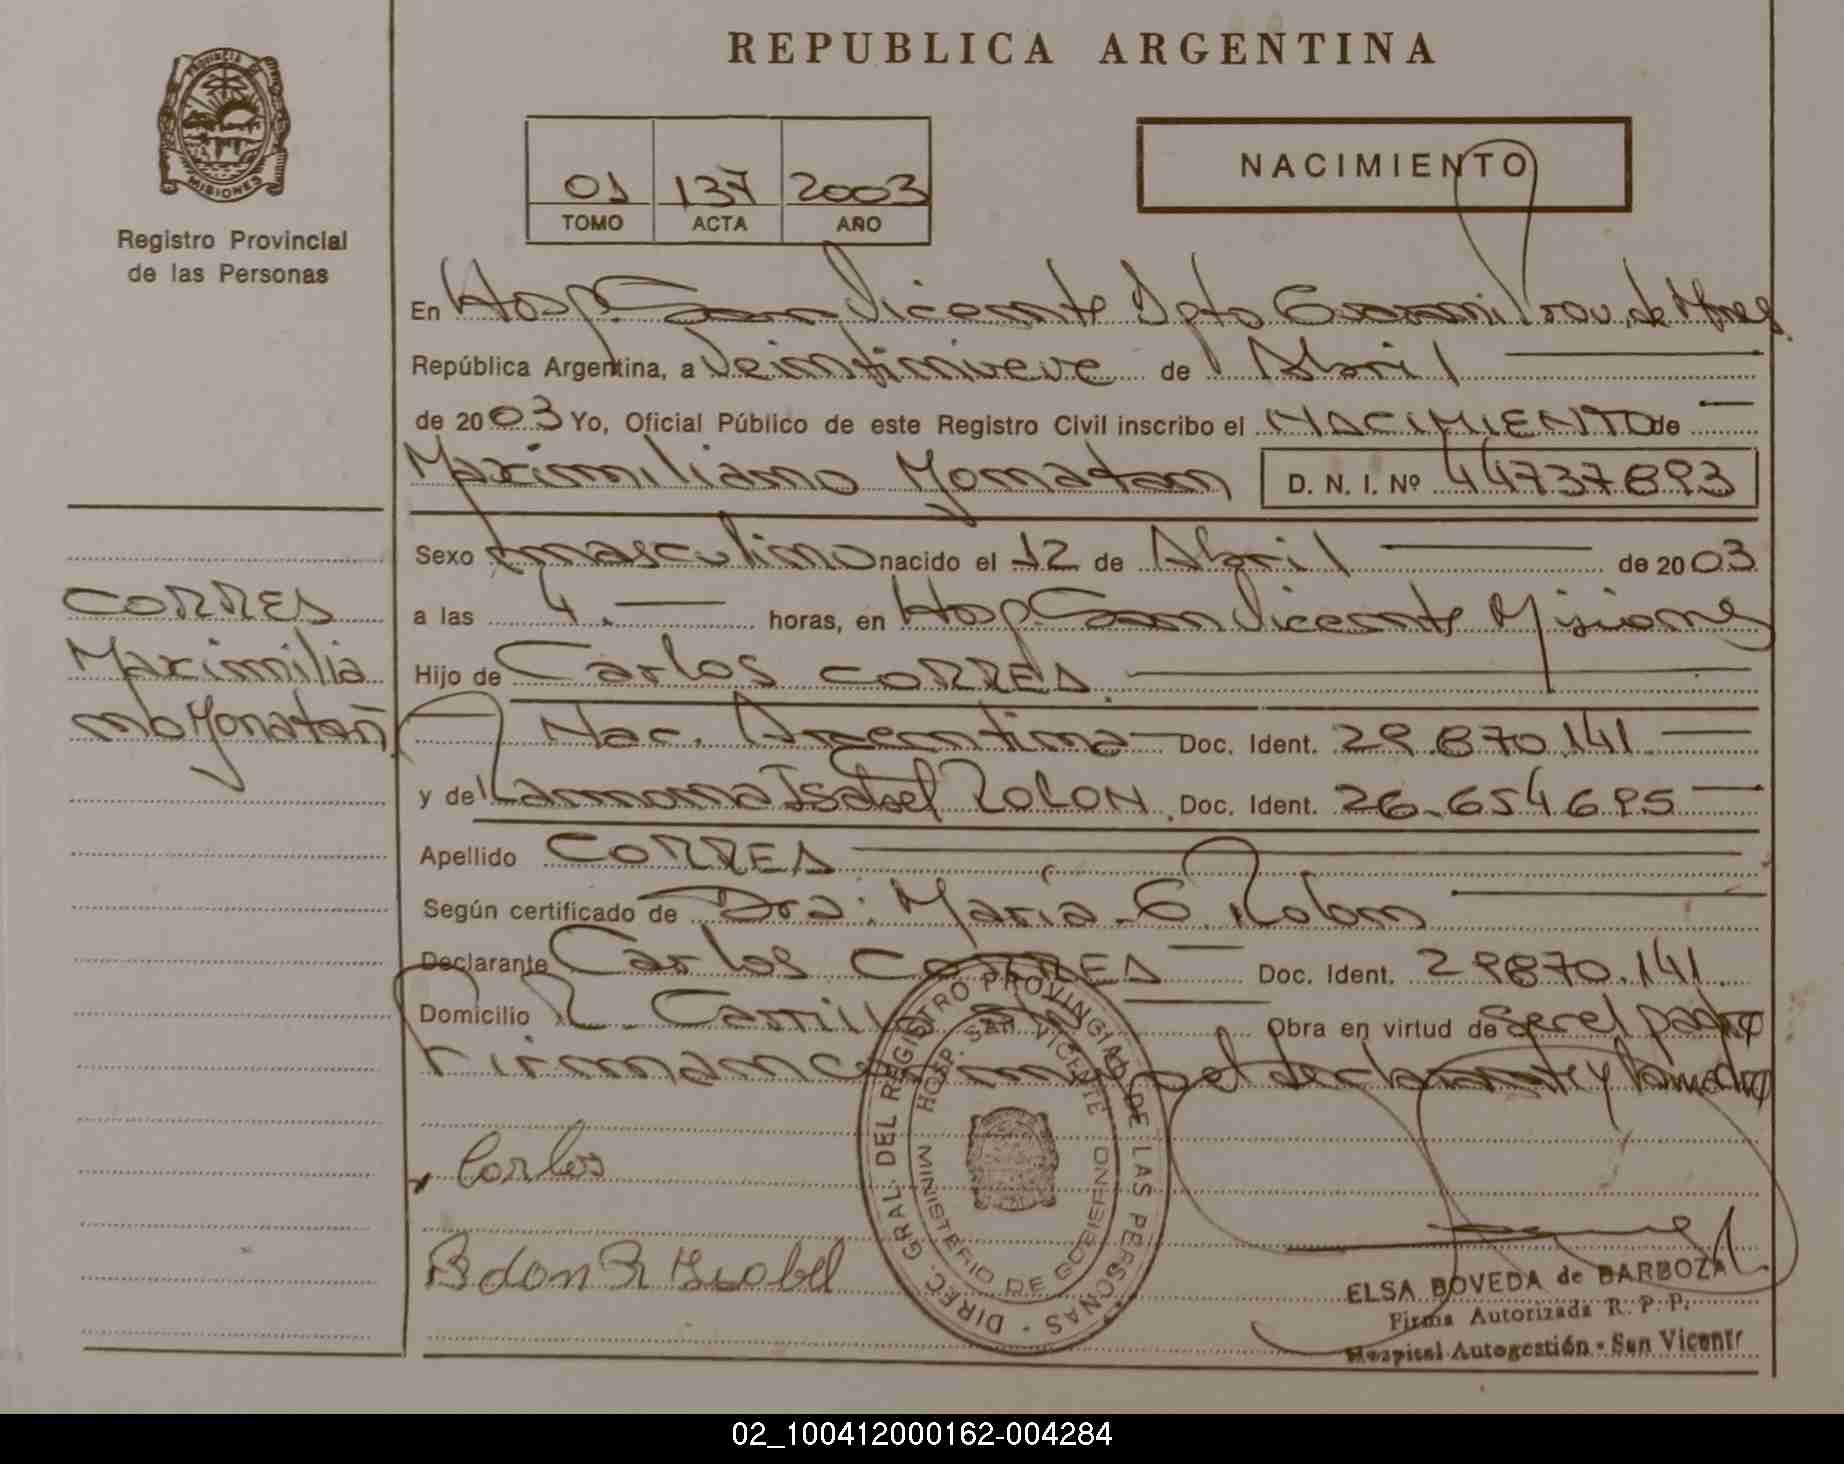 REPUBLICA ARGENTINA
PROVINCIA DE
MISIONES
Registro Provincial
de las Personas
01 137 2003
TOMO ACTA AÑO
NACIMIENTO
En Hosp. San Vicente Dpto Guarani Prov. de Mnes.
República Argentina, a Veintinueve de Abril
de 2003 Yo, Oficial Público de este Registro Civil inscribo el NACIMIENTO de
Maximiliano Yonatan D. N. I. Nº 44737893
Sexo masculino nacido el 12 de Abril de 2003
a las 4. horas, en Hosp. San Vicente Misiones
Hijo de Carlos CORREA
Nac. Argentina Doc. Ident. 29.870.141
y de Ramona Isabel ROLON Doc. Ident. 26.654.695
Apellido CORREA
Según certificado de Dra: Maria E Rolon
Declarante Carlos CORREA Doc. Ident. 29870.141.
Domicilio R. Carrillo Obra en virtud de Ser el padre
Firman el declarante y la madre
CORREA
Maximilia
no Yonatan
Carlos
Rolon R Isabel
DIREC. GRAL. DEL REGISTRO PROVINCIAL DE LAS PERSONAS
HOSP. SAN VICENTE
MINISTERIO DE GOBIERNO
ELSA BOVEDA de BARBOZA
Firma Autorizada R. P. P.
Hospital Autogestión - San Vicente
02_100412000162-004284